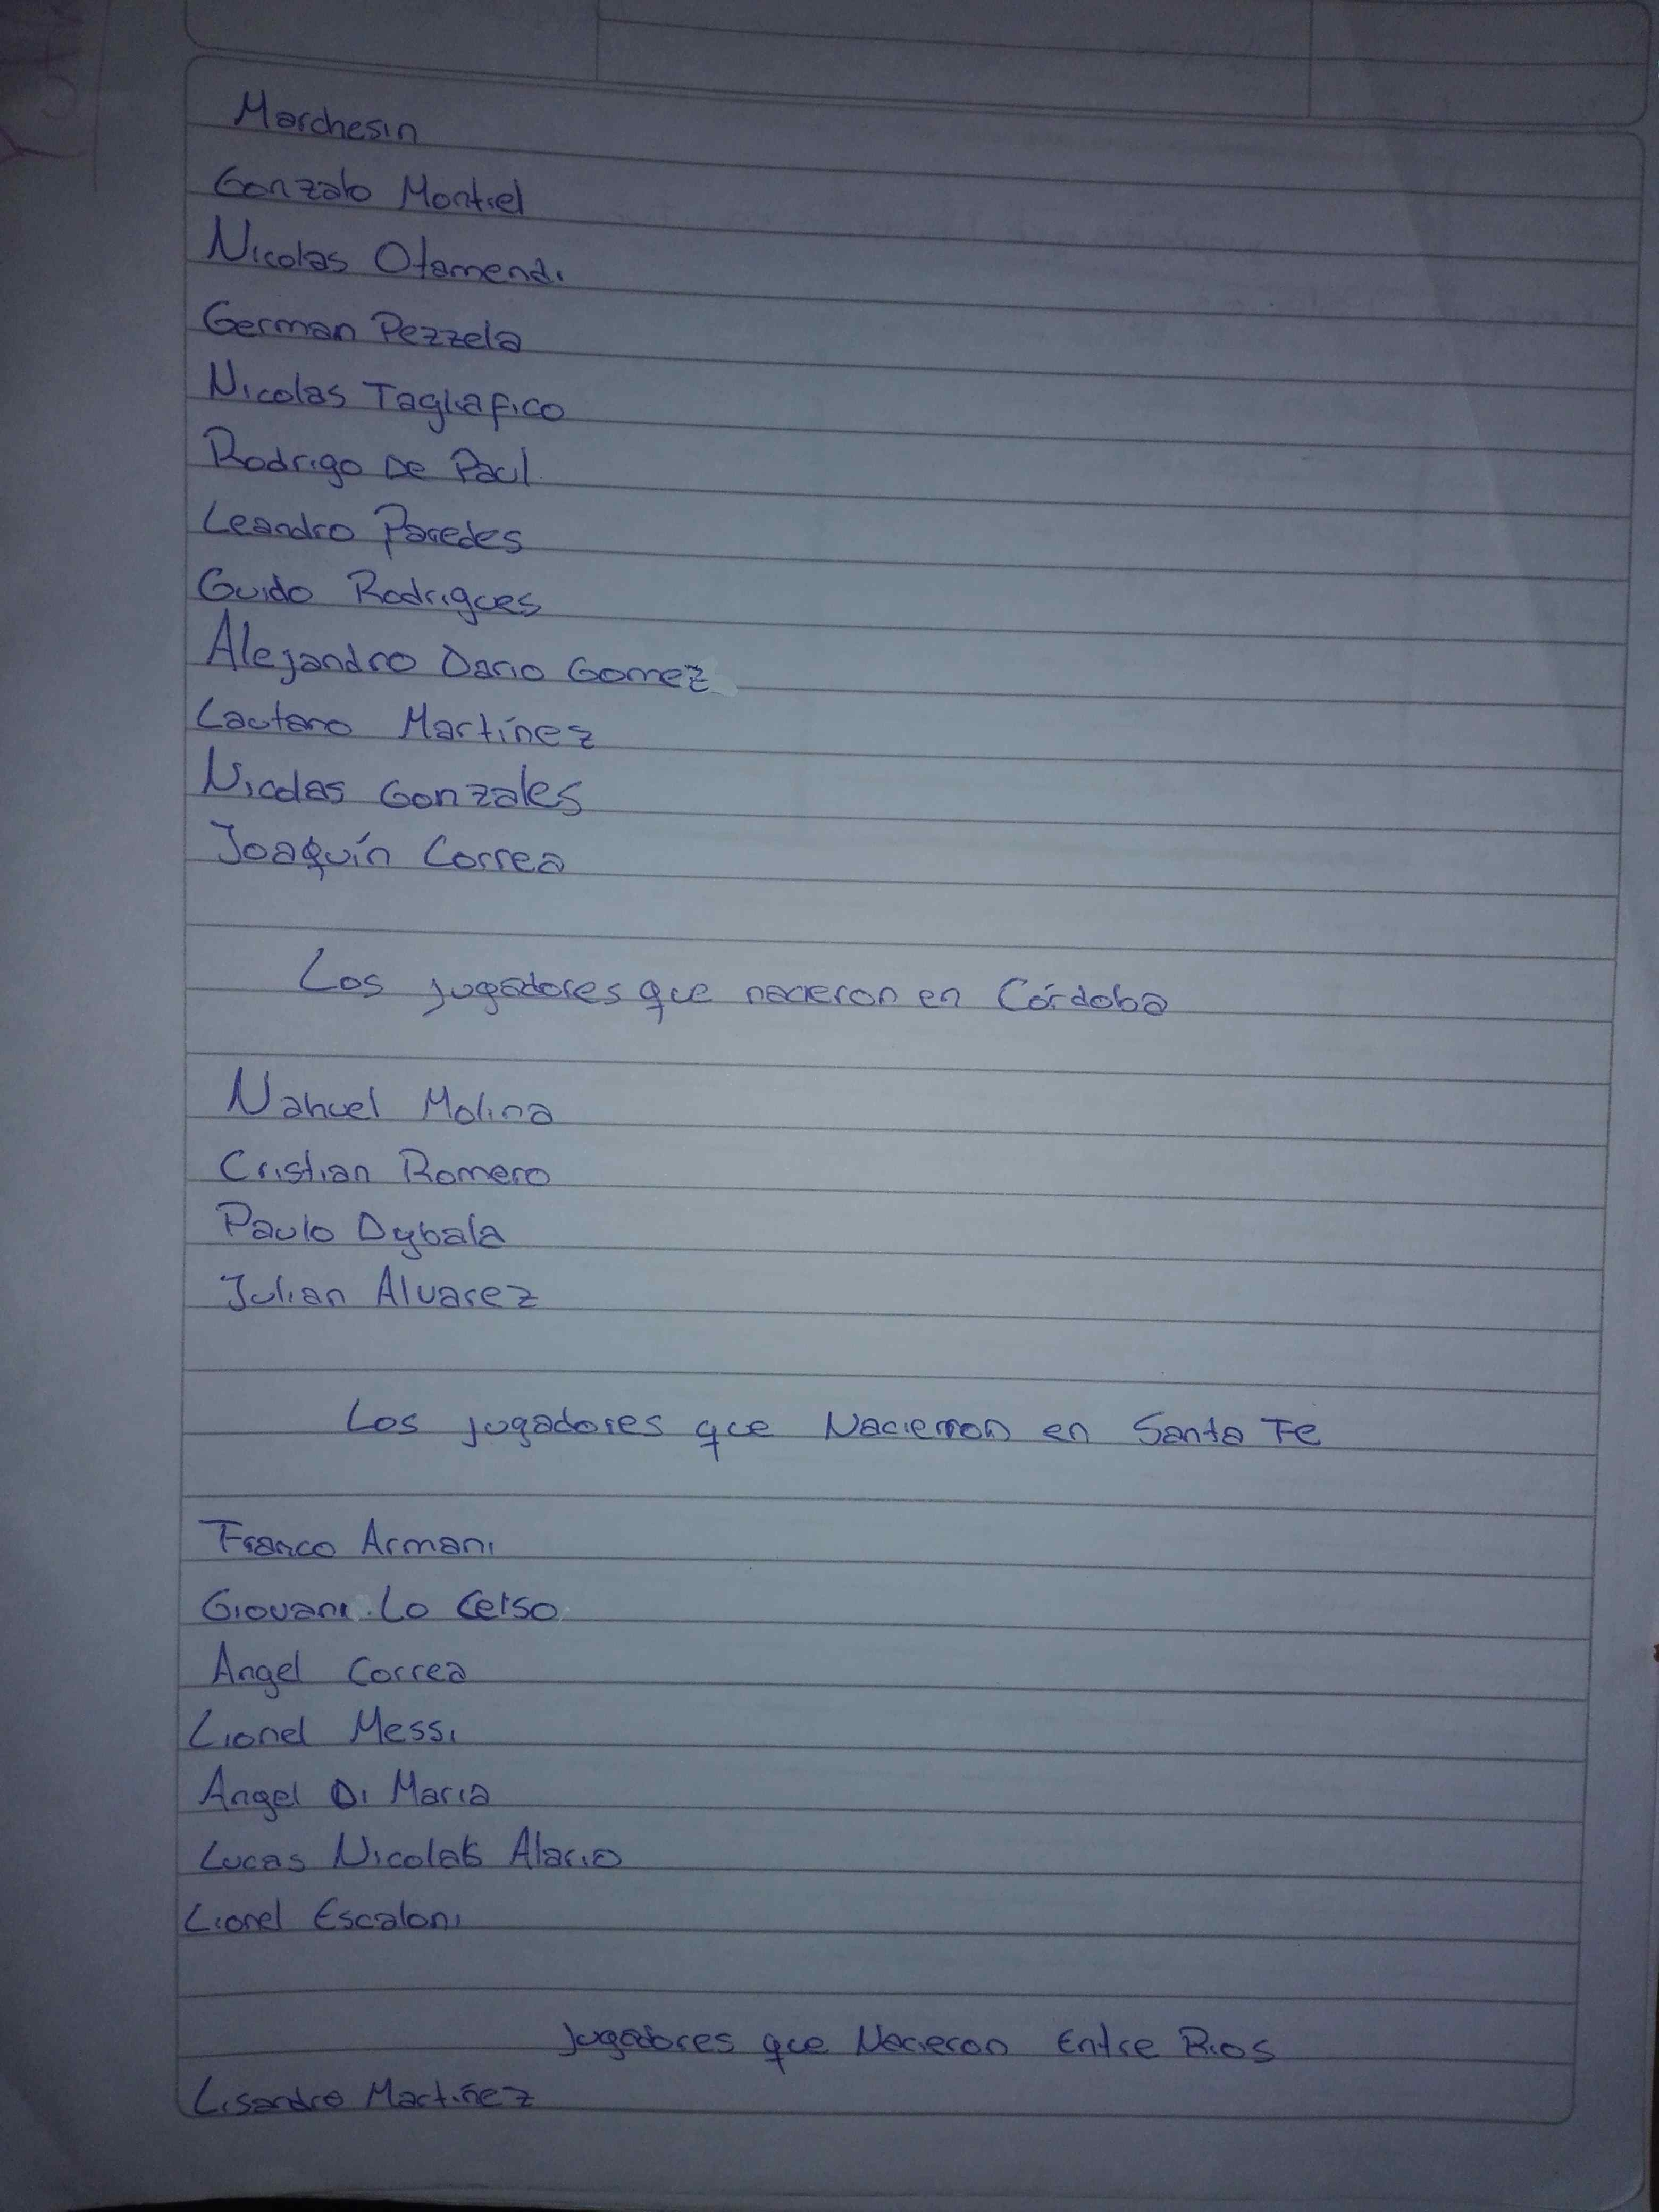 Marchesin
Gonzalo Montiel
Nicolas Otamendi
German Pezzela
Nicolas Tagliafico
Rodrigo De Paul
Leandro Paredes
Guido Rodrigues
Alejandro Dario Gomez
Lautaro Martínez
Nicolas Gonzales
Joaquín Correa
Los jugadores que nacieron en Córdoba
Nahuel Molina
Cristian Romero
Paulo Dybala
Julian Alvarez
Los jugadores que Nacieron en Santa Fe
Franco Armani
Giovani Lo Celso
Angel Correa
Lionel Messi
Angel Di Maria
Lucas Nicolas Alario
Lionel Escaloni
Jugadores que Nacieron Entre Rios
Lisandro Martinez